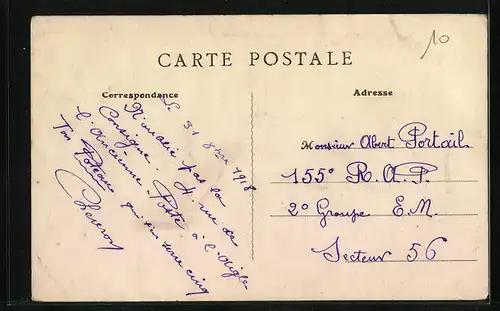 CARTE POSTALE
10
Correspondance
Adresse
Le 31 8bre 1918
N'oublie pas la
Consigne. 4. rue de
l'Ancienne Poste à l'Aigle
Ton Poteau qui en serre cinq
Monsieur Albert Portail
155° R.A.P.
2° Groupe E.M.
Secteur 56